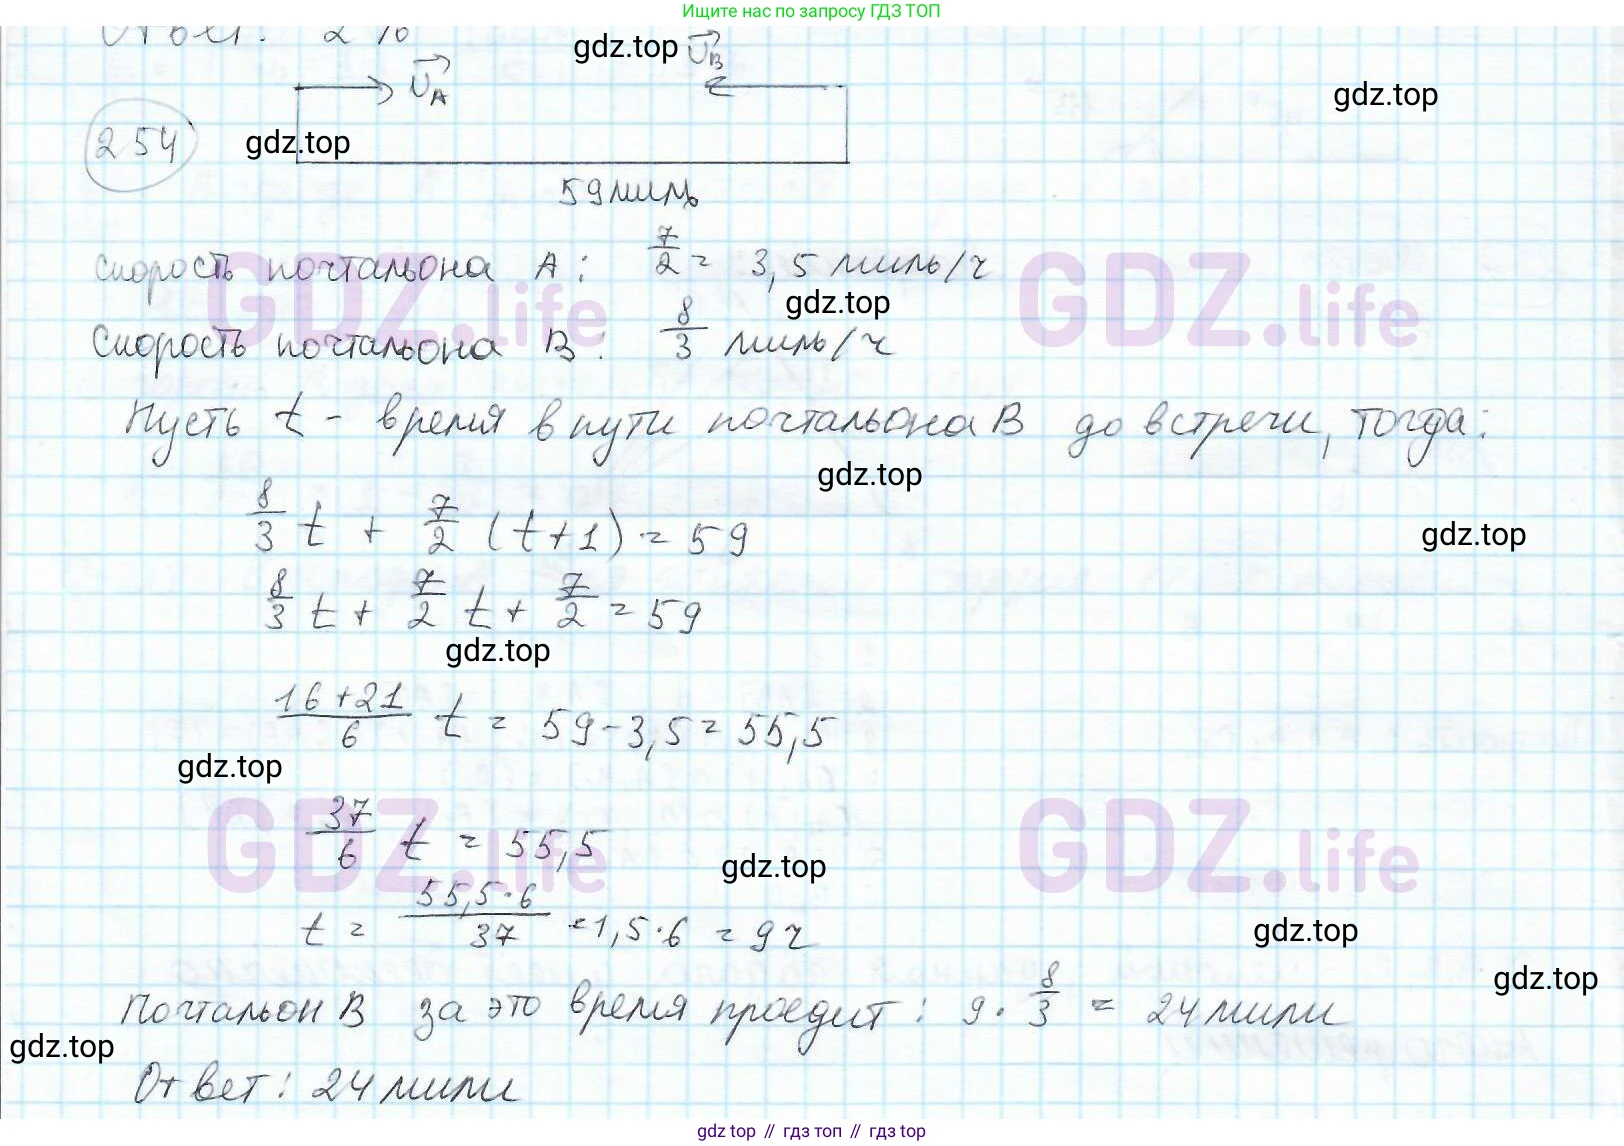 Ищите нас по запросу ГДЗ ТОП
Ответ: 2 %
gdz.top
v_A
v_B
gdz.top
254
gdz.top
59 миль
Скорость почтальона A: 7/2 = 3,5 миль/ч
GDZ.life
GDZ.life
gdz.top
Скорость почтальона B: 8/3 миль/ч
Пусть t - время в пути почтальона B до встречи, тогда:
gdz.top
8/3 t + 7/2 (t+1) = 59
gdz.top
8/3 t + 7/2 t + 7/2 = 59
gdz.top
(16+21)/6 t = 59-3,5 = 55,5
gdz.top
37/6 t = 55,5
GDZ.life
GDZ.life
gdz.top
t = (55,5·6)/37 = 1,5·6 = 9 ч
gdz.top
gdz.top
Почтальон B за это время проедит: 9 · 8/3 = 24 мили
gdz.top
Ответ: 24 мили
gdz top // гдз топ // gdz top